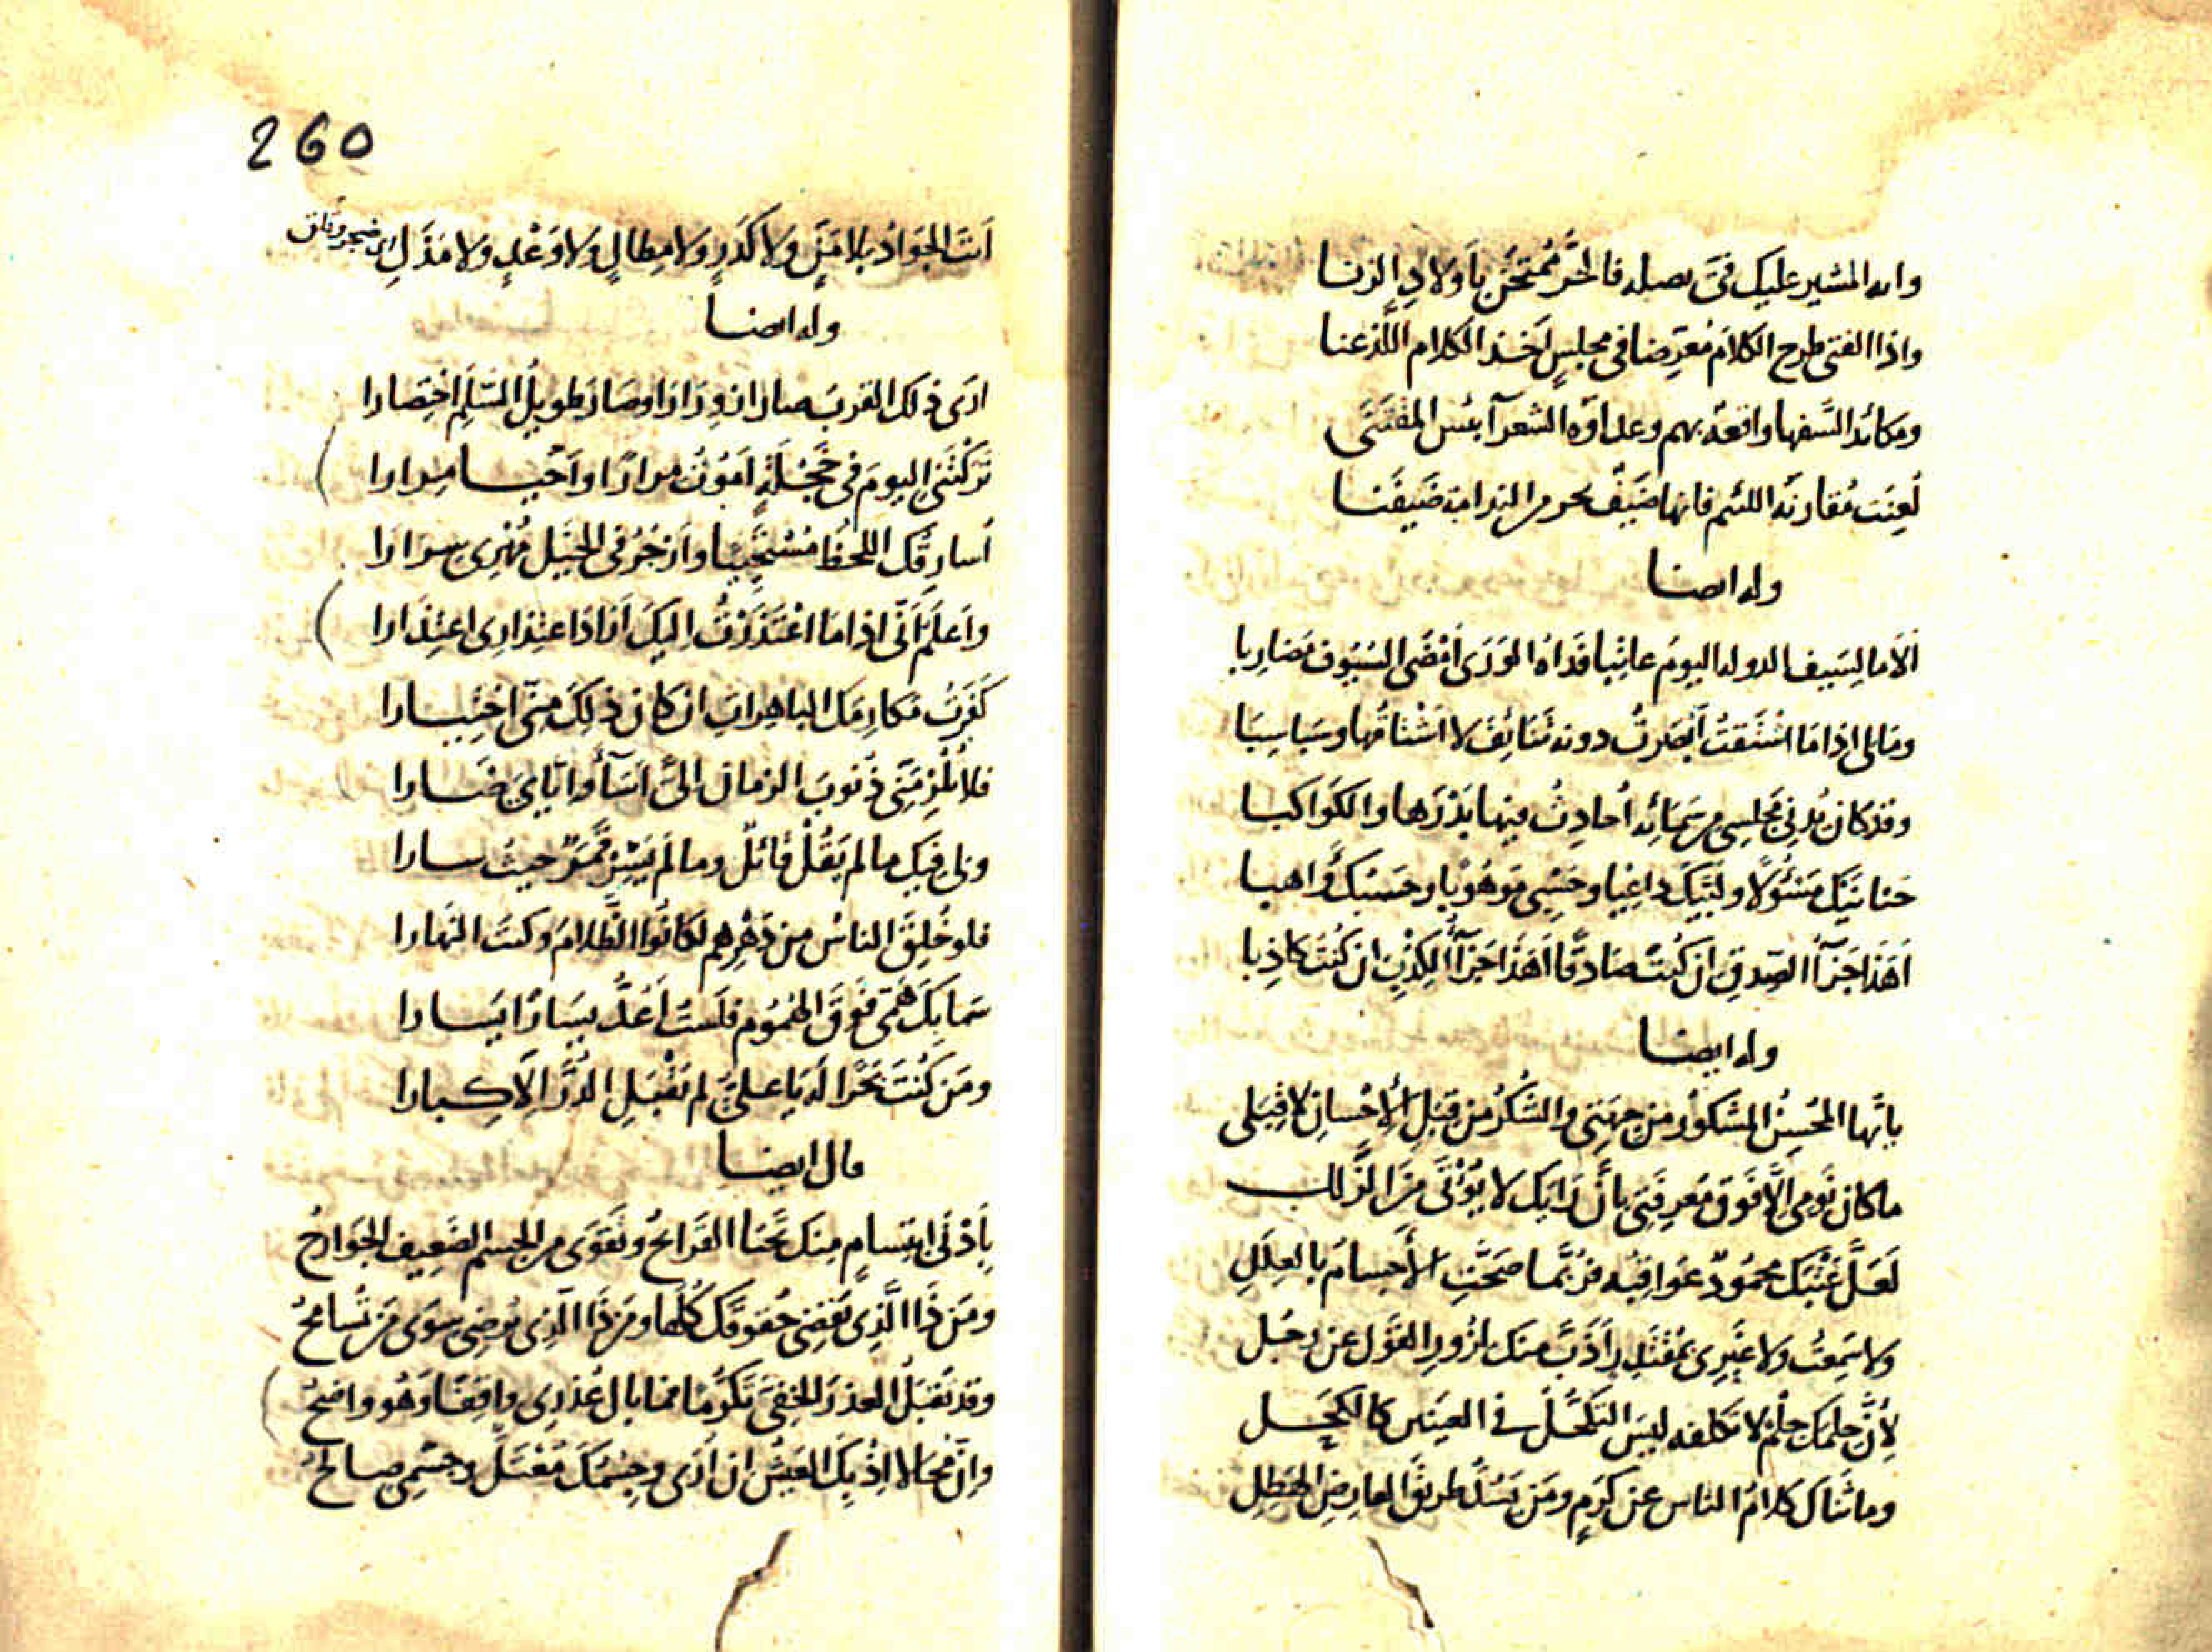 وانه المشير عليك فىّ بضلة فالحُرّ مُمتحَنٌ باَولادِ الزنا
واذا الفتى طرح الكلامَ مُعرِّضا فى مجلسٍ اَخَذَ الكلام اللَّذ عنا
ومكائد السَّفهاء واقعة بهم وعداوَة الشعرآ بئس المقتنَى
لُعِنَت مُقارنَة اللئيم فانها ضَيفٌ يجر من الندامة ضَيفَنا
وله ايضا
اَلاَ ما لِسَيف الدوله اليومَ عاتِبا فَداهُ الوَرَى اَمْضَى السُيُوفِ مَضارِبا
ومَالى اذا مَا اشْتَقتُ اَبْصَرتُ دونه تَنَائِفَ لا اَشْتاقُها وسَباسِبَا
وقد كان يُدنِى مَجلِسِى من سَمَائِه اُحادِثُ فيها بَدْرَها والكَوَاكبا
حَنانَيكَ مَسْئُولًا ولَبَّيكَ داعِيا وحَسْبِى مَوهُوبا وحَسبُكَ واهبا
اَهَذَا جَزَآءُ الصِدقِ ان كُنتُ صَادقًا اَهَذَا جَزَآءُ الكِذْبِ ان كُنتُ كاذِبا
وله ايضا
يا اَيّها المُحْسِنُ المشكوُر من جِهَتِى والشُكرُ من قِبَلِ الأِحْسانِ لا قِبَلى
ما كان نَومى اِلَّا فَوقَ مَعرِفَتِى بأَنَّ رَايَك لا يُؤْتَى مِنَ الزَّلل
لَعَلَّ عَتْبَكَ محمُودٌ عَواقِبُه فرُبَّما صَحَّتِ الأَجسامُ بالعِلَلِ
وَلا سَمِعتُ ولا غَيْرِى بمُقْتَدِرٍ اَذَبَّ منكَ لزُورِ القَول عن رجُل
لأِنَّ حِلمَك حِلْمٌ لا تكَلفه ليسَ التكَحُّلُ فى العينَين كالكَحَل
وما ثَنَاكَ كلامُ الناس عن كَرَمٍ ومَن يَسُدُّ طريقَ العارِضِ الهَطِلِ
260
اَنتَ الجَوادُ بلا مَنٍّ ولا كَدَرٍ ولا مِطالٍ ولا وَعْدٍ ولا مَذَلِ اى ضجر وقلق
وله ايضا
ارَى ذلك القربَ صار ازورَارَا وصَارَ طويلُ السَّلَمِ اخْتِصَارا
تَرَكْتَنِىَ اليومَ فى خَجْلَةٍ اَمُوتُ مرارًا واَحْيا مِرارا
اُسارِقُكَ اللحْظَ مُسْتَحْيِيا واَزجُرُ فى الخَيْل مُهْرِى سِرَارَا
واَعلَمُ اَنّى اذا مَا اعْتَذَرْتُ اليكَ اَرَادَ اعتِذارِى اعتِذارا
كَفَرتُ مَكارِمَك الباهِراتِ ان كان ذلِكَ مِنّى اختِيارا
فلا تُلْزِمَنِّى ذُنوبَ الزمان الىَّ اَسَآءَ وايّاىَ ضَارا
وعندى لك
ولى فيكِ ما لم يَقُلْ قائلٌ وما لَم يَسِرْ قَمَرٌ حيثُ سارا
فلو خُلِقَ الناسُ من دَهْرِهم لكانُوا الظّلامَ وكنتَ النّهارا
سَما بِكَ هَمِّى فوقَ الهُمُومِ فلَستُ اَعُدُّ يَسَارًا يَسارا
ومَن كُنتَ بَحْرًا له يَا عَلىُّ لم يَقْبَلِ الدُّرَّ اِلّا كِبارا
قال ايضا
بِاَدْنَى ابتِسامٍ مِنكَ تَحيَا القَرائحُ وتَقوَى من الجسم الضَعِيف الجَوارحُ
ومَن ذَا الَّذِى يَقضِى حُقوقَكَ كُلَّها ومَن ذَا الّذِى يُرضِى سِوَى مَن تُسامحُ
وقد تَقبَلُ العذرَ الخفِىَّ تَكرُّمًا فما بالُ عُذرِى واقِفًا وَهُو واضحُ
وانّ مُحَالا اذْ بِكَ العَيْشُ ان اُرَى وجِسْمُكَ مُعْتَلٌّ وجِسْمِى صالحُ